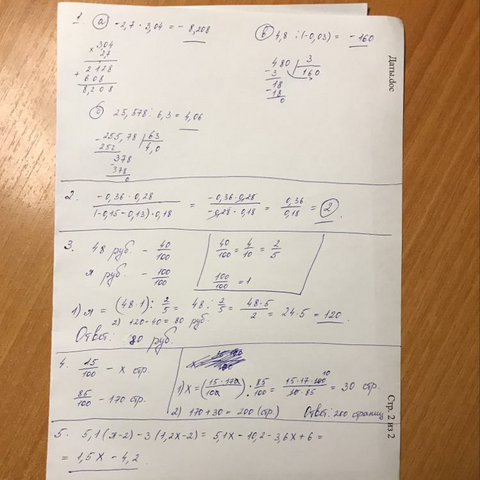 1 а) -2,7 · 3,04 = -8,208
× 3,04
2,7
+ 2128
608
8,208
в) 4,8 : (-0,03) = -160
480 | 3
-3 160
-18
18
0
б) 25,578 : 6,3 = 4,06
-255,78 | 63
252 4,0
-378
378
0
2. -0,36 · 0,28 / (-0,15-0,13) · 0,18 = -0,36 · 0,28 / -0,28 · 0,18 = 0,36 / 0,18 = 2
3. 48 руб. - 40/100
я руб. - 100/100
40/100 = 4/10 = 2/5
100/100 = 1
1) я = (48·1) : 2/5 = 48 : 2/5 = 48·5 / 2 = 24·5 = 120
2) 120-40 = 80 руб.
Ответ: 80 руб.
4. 15/100 - x стр.
85/100 - 170 стр.
1) X = (15·170 / 100) : 85/100 = 30 стр.
2) 170+30 = 200 (стр.) Ответ: 200 страниц
5. 5,1(я-2) - 3(1,2х-2) = 5,1х - 10,2 - 3,6х + 6 =
= 1,5х - 4,2
Даты.doc
Стр. 2 из 2